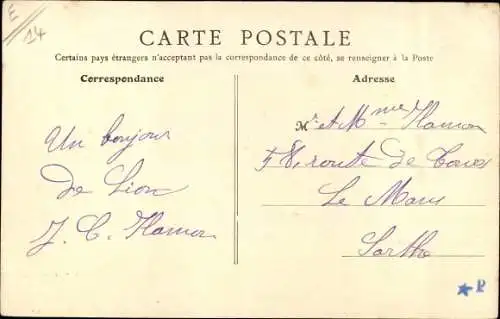 E
14
CARTE POSTALE
Certains pays étrangers n'acceptent pas la correspondance de ce côté, se renseigner à la Poste
Correspondance
Adresse
Un bonjour
de Lion
J. C. Hamon
Mr et Mme Hamon
route de Tours
Le Mans
Sarthe